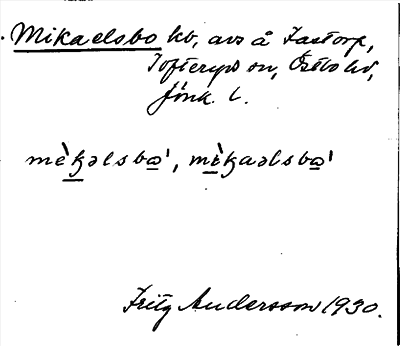 Mikaelsbo hv, avs å Fastorp,
Tofteryds sn, Östbo hd,
Jönk. l.
mèkəlsbo', mèkaəlsbo'
Fritz Andersson 1930.